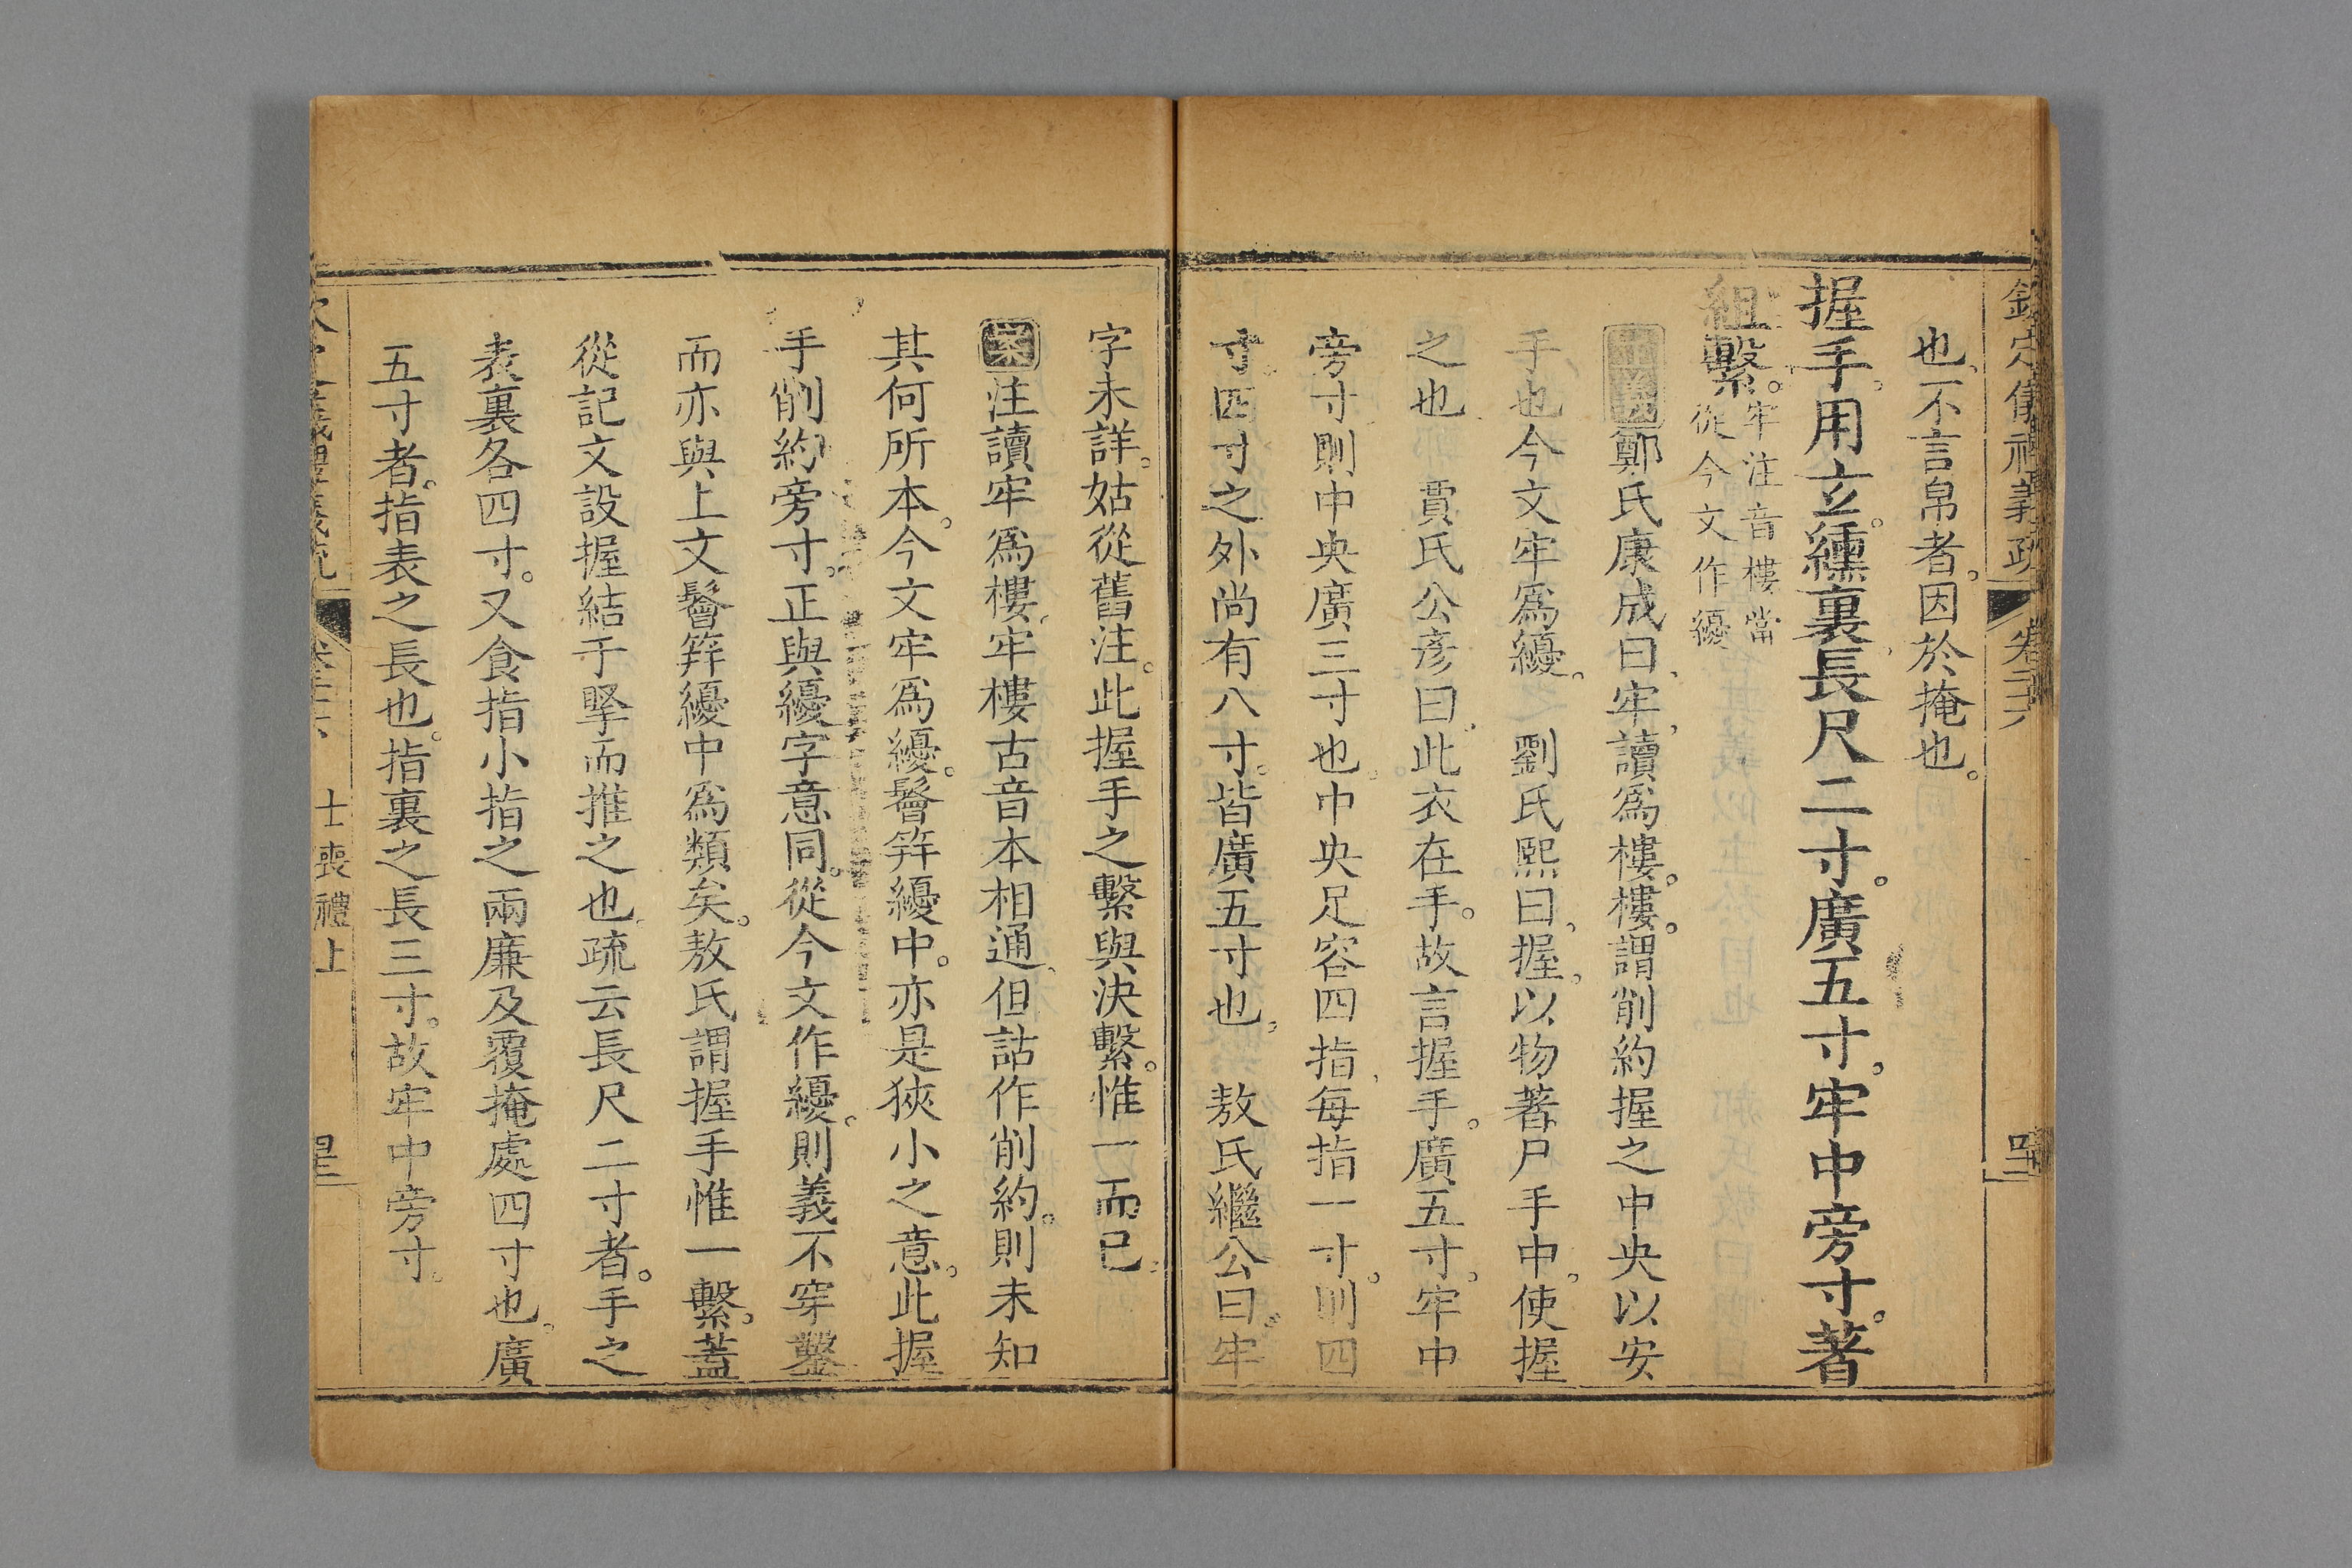 欽定儀禮義疏 卷二十六
也不言帛者。因於掩也。
握手。用玄。纁裏。長尺二寸。廣五寸。牢中旁寸。著
組繫。
牢注音樓當
從今文作纋
正義鄭氏康成曰。牢讀爲樓。樓。謂削約握之中央以安
手也今文牢爲纋。 劉氏熙曰。握。以物著尸手中。使握
之也 賈氏公彥曰。此衣在手。故言握手。廣五寸。牢中
旁寸則中央廣三寸也。中央足容四指每指一寸。則四
寸。四寸之外尚有八寸。皆廣五寸也。 敖氏繼公曰。牢
字未詳。姑從舊注。此握手之繫與決繫。惟一而已。
案注讀牢爲樓。牢樓古音本相通。但詁作削約。則未知
其何所本。今文牢爲纋。鬠笄纋中。亦是狹小之意。此握
手削約旁寸。正與纋字意同。從今文作纋。則義不穿鑿
而亦與上文鬠笄纋中爲類矣。敖氏謂握手惟一繫。蓋
從記文設握結于掔而推之也。疏云長尺二寸者。手之
表裏各四寸。又食指小指之兩廉及覆掩處四寸也。廣
五寸者。指表之長也。指裏之長三寸。故牢中旁寸。
士喪禮上